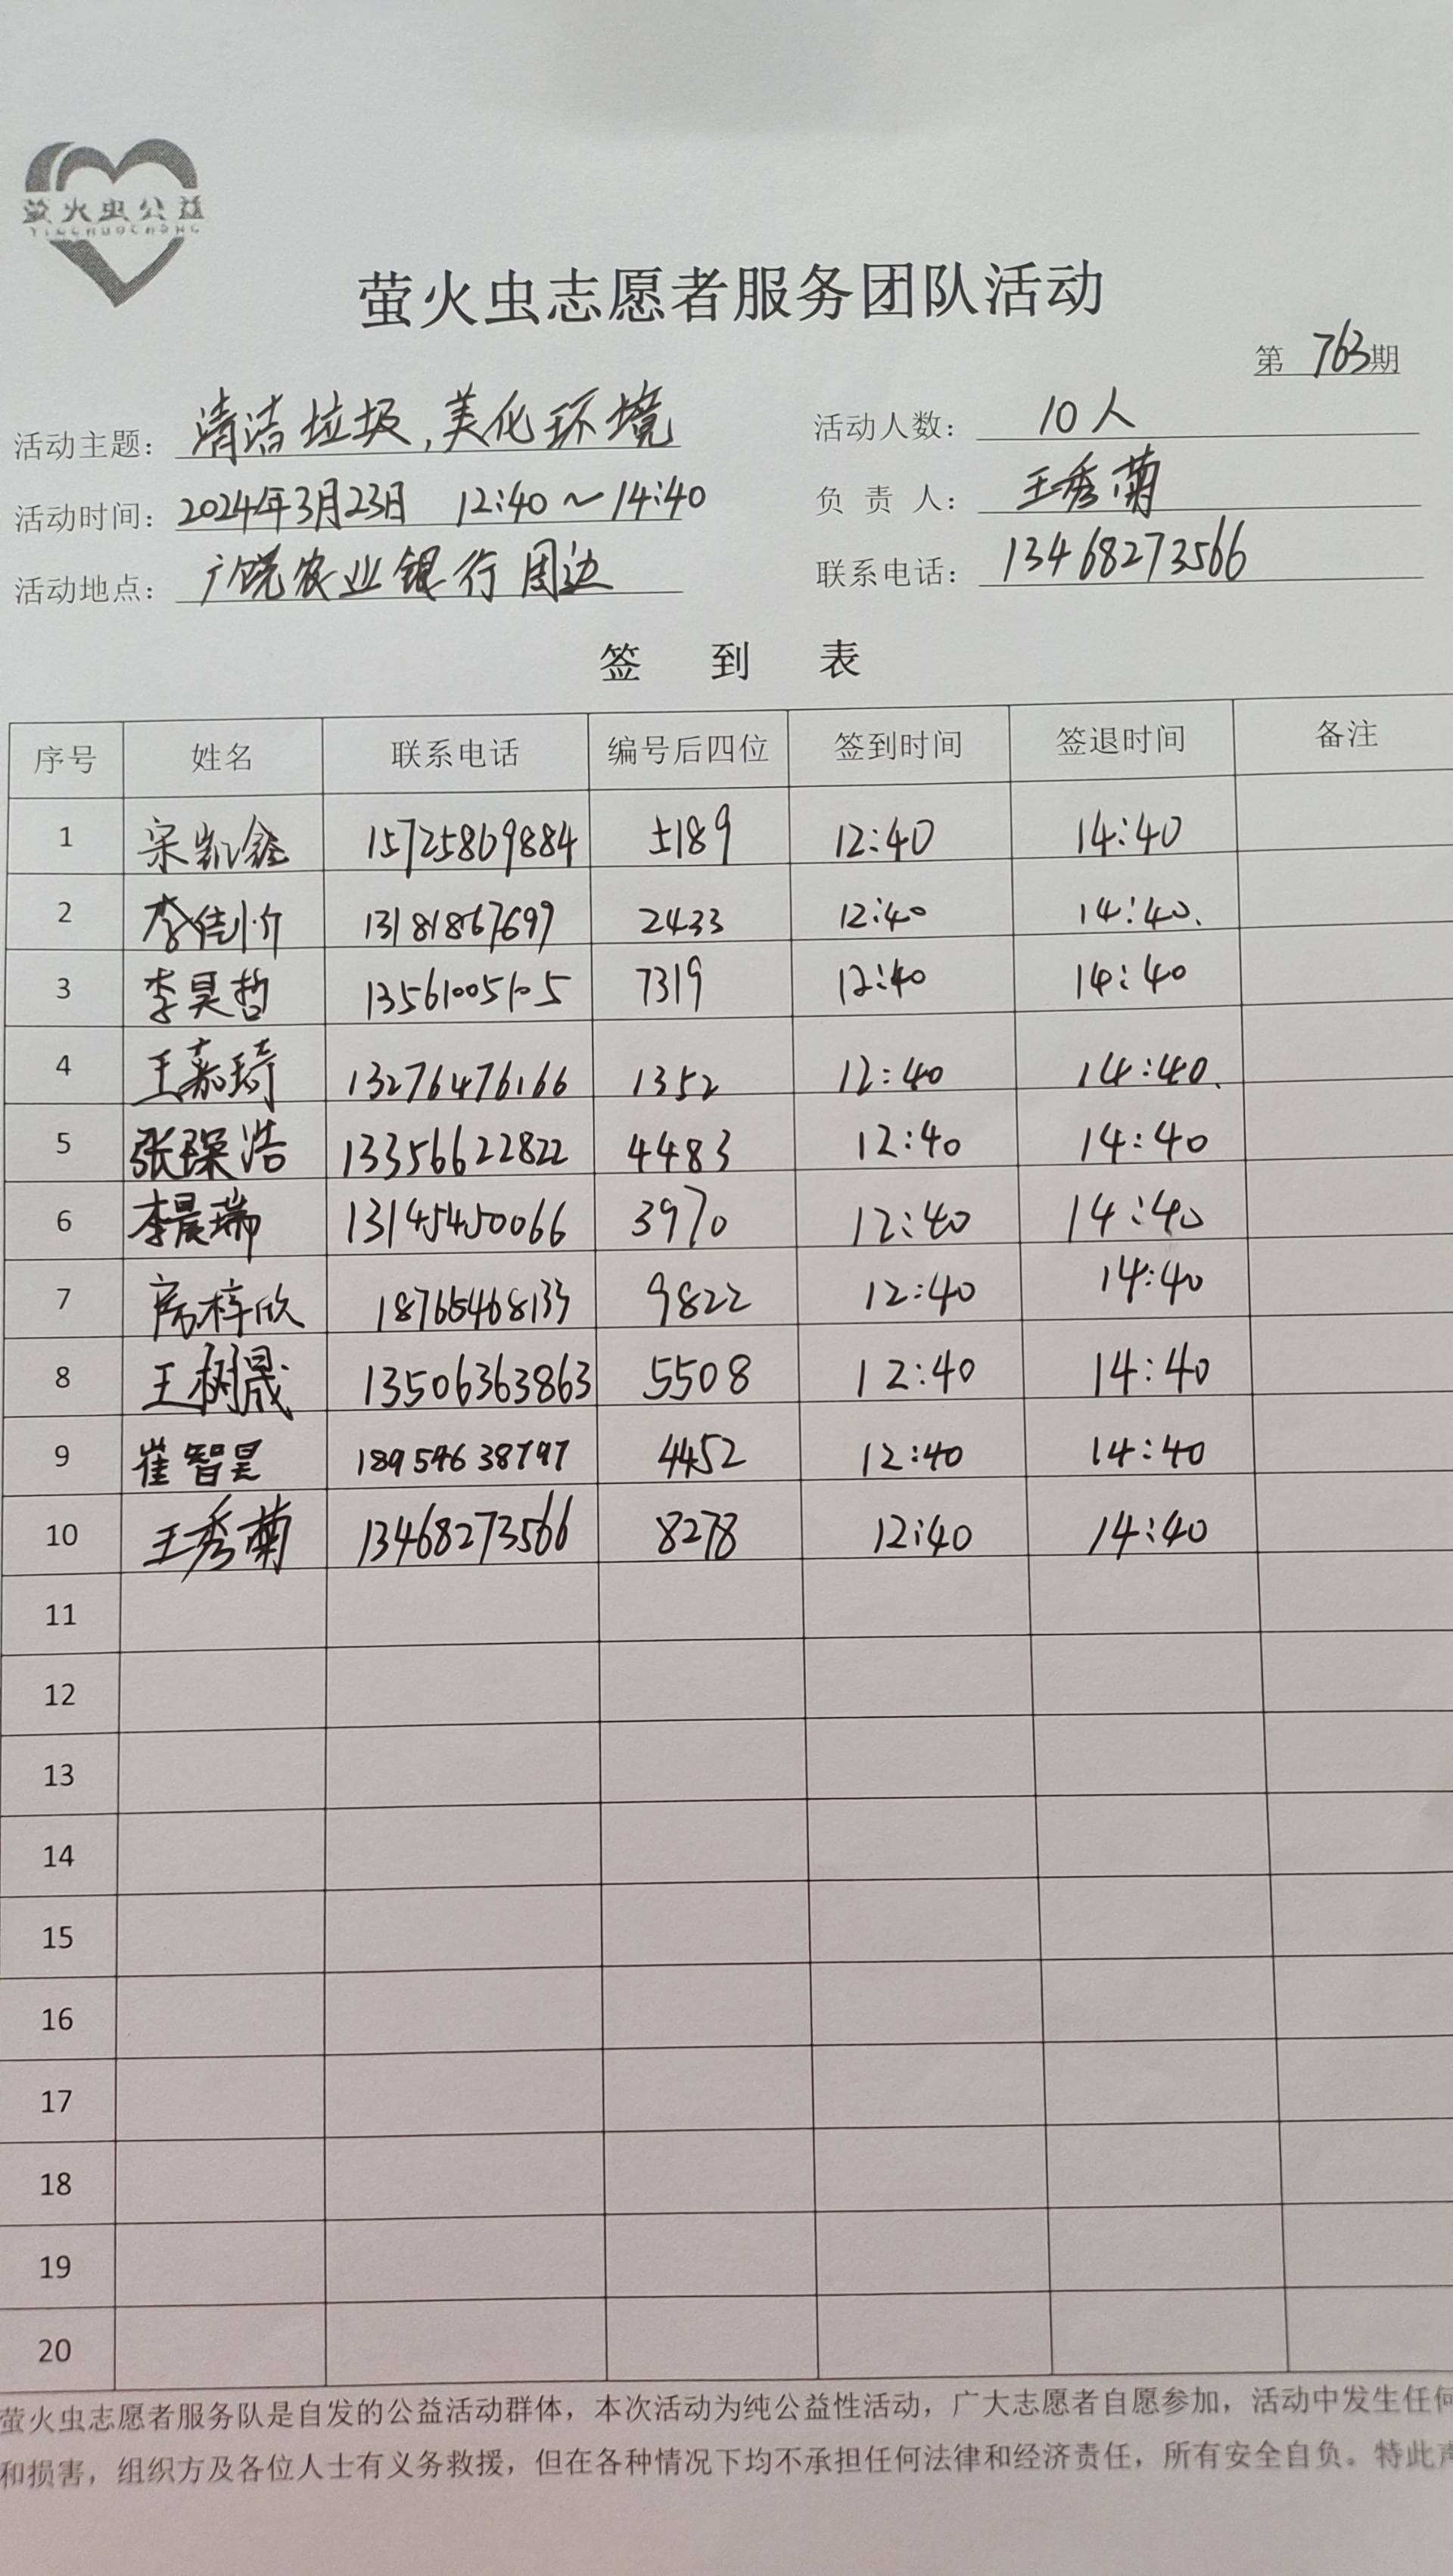 萤火虫公益
YINGHUOCHONG
萤火虫志愿者服务团队活动
第 763期
活动主题： 清洁垃圾，美化环境 活动人数： 10人
活动时间： 2024年3月23日 12:40～14:40 负责人： 王秀菊
活动地点： 广饶农业银行周边 联系电话： 13468273566
签 到 表
序号 姓名 联系电话 编号后四位 签到时间 签退时间 备注
1 宋凯鑫 15725869884 5189 12:40 14:40
2 13181867697 2433 12:40 14:40.
3 李昊哲 13561005105 7319 12:40 14:40
4 王嘉琦 13276476166 1352 12:40 14:40.
5 张琛浩 13356622822 4483 12:40 14:40
6 李晨瑞 13145450066 3970 12:40 14:40
7 梓欣 18765468133 9822 12:40 14:40
8 王树晟 13506363863 5508 12:40 14:40
9 崔智昊 18954638797 4452 12:40 14:40
10 王秀菊 13468273566 8278 12:40 14:40
11
12
13
14
15
16
17
18
19
20
萤火虫志愿者服务队是自发的公益活动群体，本次活动为纯公益性活动，广大志愿者自愿参加，活动中发生任何
和损害，组织方及各位人士有义务救援，但在各种情况下均不承担任何法律和经济责任，所有安全自负。特此声